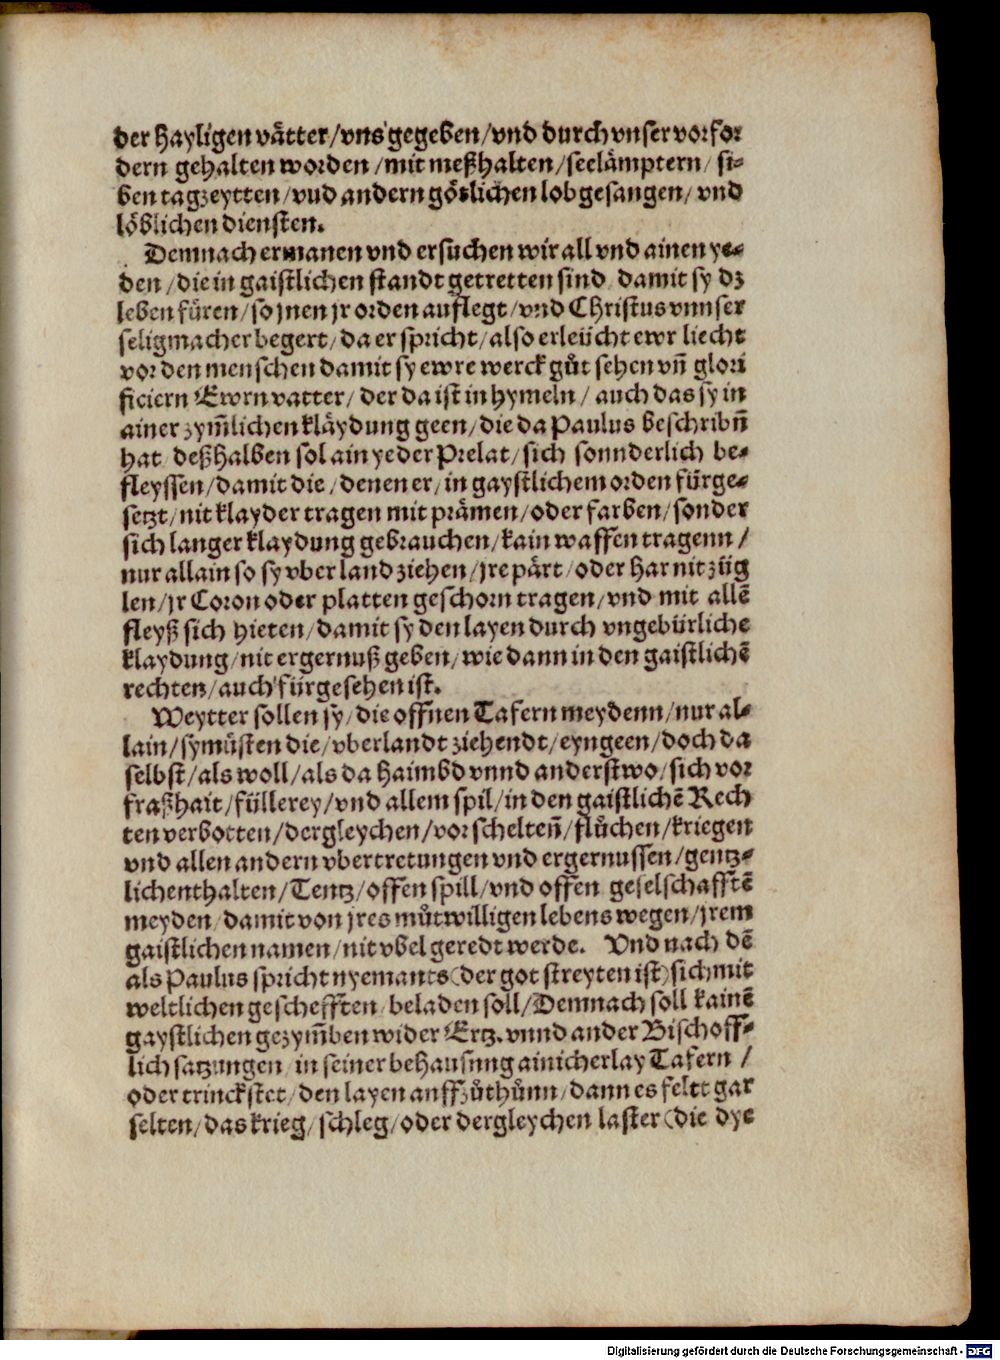 der Hayligen vätter/vns gegeben/vnd durch vnser vorfor
dern gehalten worden/mit meßhalten/seelämptern/si-
ben tagzeytten/vnd andern götlichen lobgesangen/vnd
löblichen diensten.
Demnach ermanen vnd ersuchen wir all vnd ainen ye-
den/die in gaistlichen standt getretten sind damit sy dz
leben füren/so jnen jr orden auflegt/vnd Christus vnnser
seligmacher begert/da er spricht/also erleücht ewr liecht
vor den menschen damit sy ewre werck gůt sehen vn̄ glori
ficiern Ewrn vatter/der da ist in hymeln/auch das sy in
ainer zym̄lichen kläydung geen/die da Paulus beschribn̄
hat deßhalben sol ain yeder Prelat/sich sonnderlich be-
fleyssen/damit die/denen er/in gaystlichem orden fürge-
setzt/nit klayder tragen mit prämen/oder farben/sonder
sich langer klaydung gebrauchen/kain waffen tragenn/
nur allain so sy vber land ziehen/jre pärt/oder Har nit züg
len/jr Coron oder platten geschorn tragen/vnd mit allē
fleyß sich hieten/damit sy den layen durch vngebürliche
klaydung/nit ergernuß geben/wie dann in den gaistlichē
rechten/auch fürgesehen ist.
Weytter sollen sy/die offnen Tafern meydenn/nur al-
lain/sy müsten die/vberlandt ziehendt/eyngeen/doch da
selbst/als woll/als da haimbd vnnd anderstwo/sich vor
fraßhait/füllerey/vnd allem spil/in den gaistlichē Rech
ten verbotten/dergleychen/vor schelten̄/flůchen/kriegen
vnd allen andern vbertretungen vnd ergernussen/gentz-
lich enthalten/Tentz/offen spill/vnd offen geselschafftē
meyden/damit von jres můtwilligen lebens wegen/jrem
gaistlichen namen/nit vbel geredt werde. Vnd nach dē
als Paulus spricht nyemants (der got streyten ist) sich mit
weltlichen geschefften beladen soll/Demnach soll kainē
gaystlichen gezym̄ben wider Ertz. vnnd ander Bischoff-
lich satzungen in seiner behausung ainicherlay Tafern/
oder trinckstet/den layen auffzůthůnn/dann es feltt gar
selten/das krieg/schleg/oder dergleychen laster (die dye
Digitalisierung gefördert durch die Deutsche Forschungsgemeinschaft - DFG